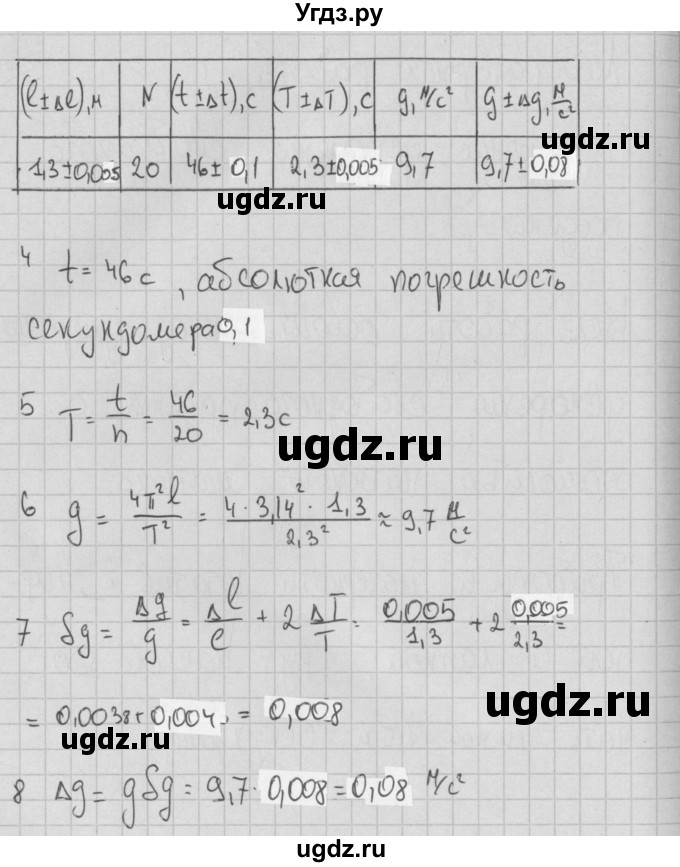 Угдз.ру
(l±Δl),м N (t±Δt),с (T±ΔT),с g,м/с² g±Δg, м/с²
1,3±0,005 20 46±0,1 2,3±0,005 9,7 9,7±0,08
ugdz.ru
ugdz.ru
4 t=46с, абсолютная погрешность
секундомера 0,1
ugdz.ru
5 T = t/n = 46/20 = 2,3с
ugdz.ru
6 g = 4π²l/T² = 4·3,14²·1,3/2,3² ≈ 9,7 м/с²
7 δg = Δg/g = Δl/l + 2 ΔT/T = 0,005/1,3 + 2 0,005/2,3 =
= 0,0038+0,004 = 0,008
ugdz.ru
ugdz.ru
8 Δg = gδg = 9,7·0,008=0,08 м/с²
ugdz.ru